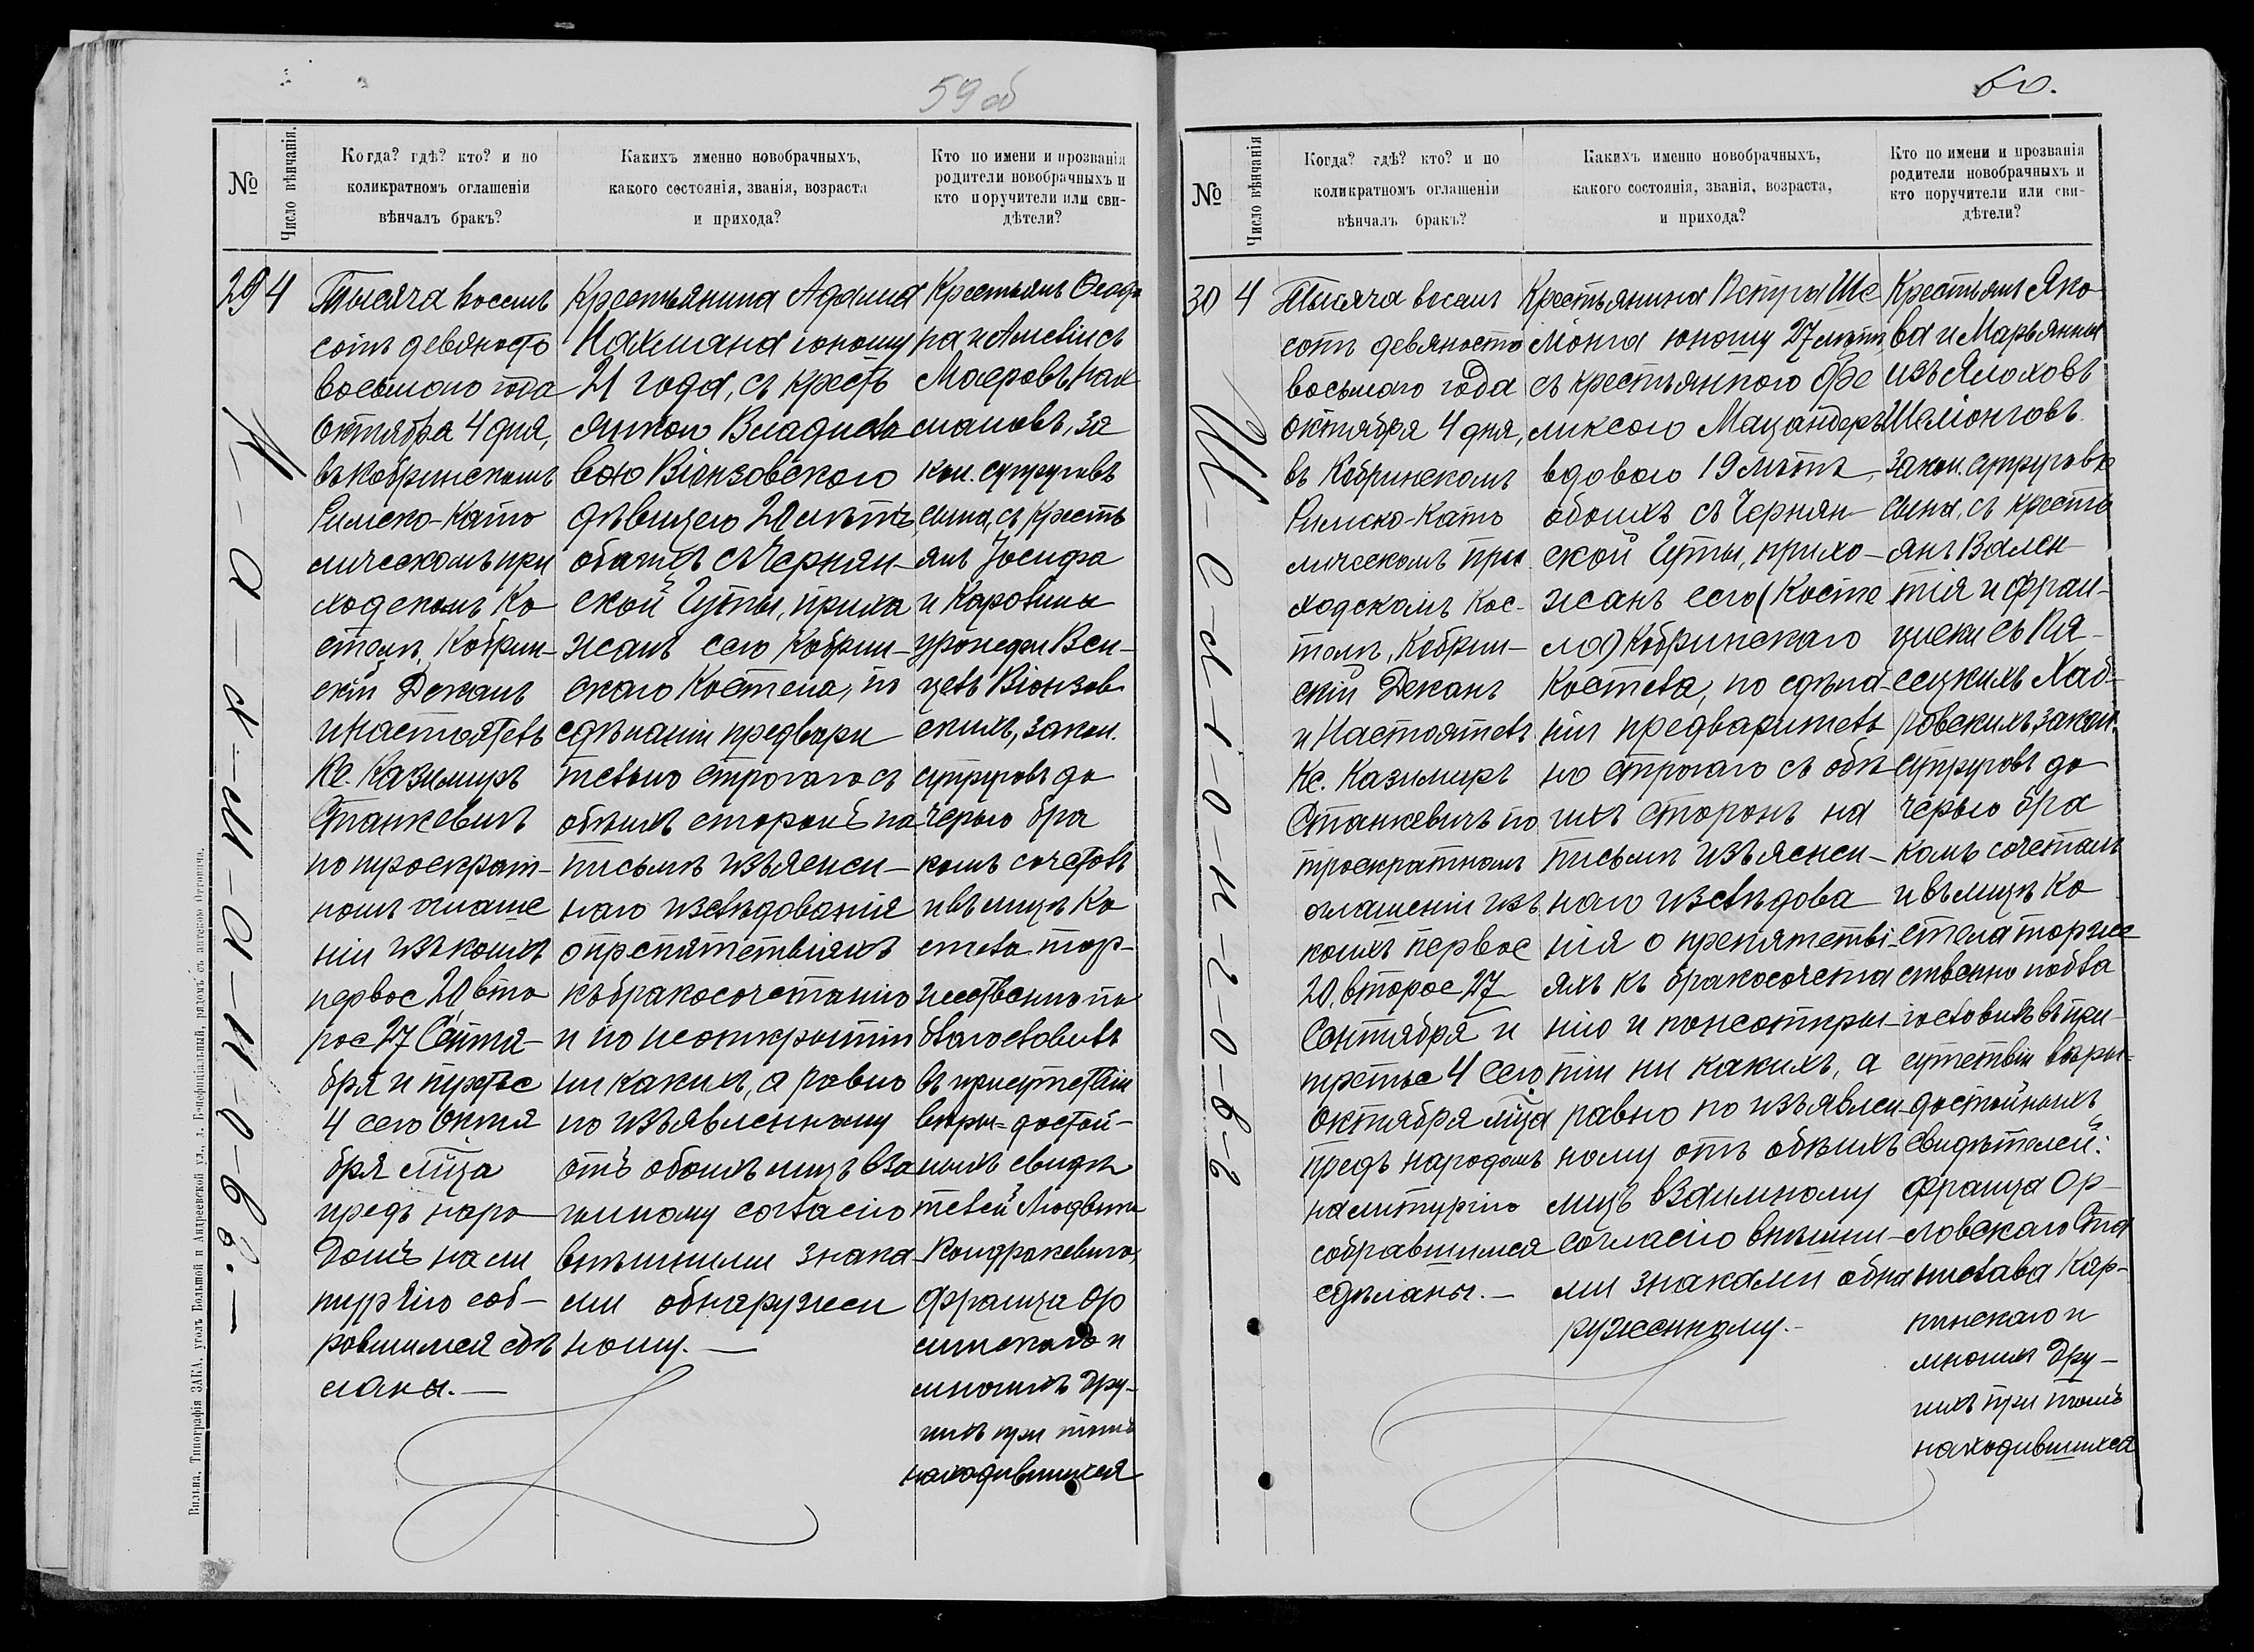 59 об
№
Число вѣнчанія.
Когда? гдѣ? кто? и по
коликратномъ оглашеніи
вѣнчалъ бракъ?
Какихъ именно новобрачныхъ,
какого состоянія, званія, возраста
и прихода?
Кто по имени и прозванія
родители новобрачныхъ и
кто поручители или сви-
дѣтели?
29
4
Тысяча восемь
сотъ девяносто
восьмаго года
Октября 4 дня,
въ Кобринскомъ
Римско-Като
лическомъ при
ходскомъ Ко
стелѣ, Кобрин-
скій Деканъ
и Настоятель
Кс. Казимиръ
Станкевичъ
по троекрат-
номъ оглаше
ніи изъ коихъ
первое 20 вто
рое 27 Сентя-
бря и третье
4 сего Октя
бря м̃ца
предъ наро
домъ на ли
тургію соб-
равшимся сдѣ
ланы.—
Крестьянина Адама
Нахмана юношу
21 года, съ кресть
янкою Владисла
вою Віонзовскою
дѣвицею 20 лѣтъ,
обоихъ съ Чернян-
ской Гуты, прихо
жанъ сего Кобрин-
скаго Костела, по
сдѣланіи предвари
тельно строгаго съ
обѣихъ сторонъ на
письмѣ изъяснен-
наго изслѣдованія
о препятствіяхъ
къ бракосочетанію
и по неоткрытіи
ни какихъ, а равно
по изъявленному
отъ обоихъ лицъ вза
имному согласію
внѣшними знака
ми обнаружен
ному.—
Крестьянъ
и Амеліи съ
Нах
мановъ, за
кон. супруговъ
сына, съ кресть
янъ Іосифа
и Каролины
Віонзов
скихъ, закон.
супруговъ до
черью бра
комъ сочеталъ
и въ лицѣ Ко
стела тор-
жественно по
благословилъ
въ присутствіи
вѣры-достой-
ныхъ свидѣ
телей Людвика
Кондракевича,
Франца Ор
и
многихъ дру-
гихъ при томъ
находившихся
Н-а-х-м-а-н-о-в-ъ.—
Вильна, Типографія ЗАКА, уголъ Большой и Андреевской ул., д. Бенефиціальный, рядомъ съ аптекою Оттовича.
60.
№
Число вѣнчанія
Когда? гдѣ? кто? и по
коликратномъ оглашеніи
вѣнчалъ бракъ?
Какихъ именно новобрачныхъ,
какого состоянія, званія, возраста,
и прихода?
Кто по имени и прозванія
родители новобрачныхъ и
кто поручители или сви-
дѣтели?
30
4
Тысяча восемь
сотъ девяносто
восьмаго года
Октября 4 дня,
въ Кобринскомъ
Римско-Като
лическомъ при
ходскомъ Кос-
телѣ, Кобрин-
скій Деканъ
и Настоятель
Кс. Казимиръ
Станкевичъ по
троекратномъ
оглашеніи изъ
коихъ первое
20, второе 27
Сентября и
третье 4 сего
Октября м̃ца
предъ народомъ
на литургію
собравшимся
сдѣланы.—
Крестьянина Петра Ше
ліонга юношу 27 лѣтъ,
съ крестьянкою Фе
ликсою
вдовою 19 лѣтъ,
обоихъ съ Чернян-
ской Гуты, прихо-
жанъ сего (Косте
ла) Кобринскаго
Костела, по сдѣла-
ніи предваритель
но строгаго съ обѣ
ихъ сторонъ на
письмѣ изъяснен-
наго изслѣдова
нія о препятстві-
яхъ къ бракосочета
нію и по неоткры-
тіи ни какихъ, а
равно по изъявлен-
ному отъ обѣихъ
лицъ взаимному
согласію внѣшни-
ми знаками обна
руженному.—
Крестьянъ Яко
ва и Марьянны
изъ
Шеліонговъ
закон. супруговъ
сына, съ кресть
янъ Вален
тія и Фран-
циски съ
Хаб-
ровскихъ, закон.
супруговъ до
черью бра
комъ сочеталъ
и въ лицѣ Ко
стела торже
ственно побла
гословилъ въ при-
сутствіи вѣры-
достойныхъ
свидѣтелей:
Франца Ор-
ловскаго Ста
нислава Кар-
пинскаго и
многихъ дру-
гихъ при томъ
находившихся
Ш-е-л-і-о-н-г-о-в-ъ